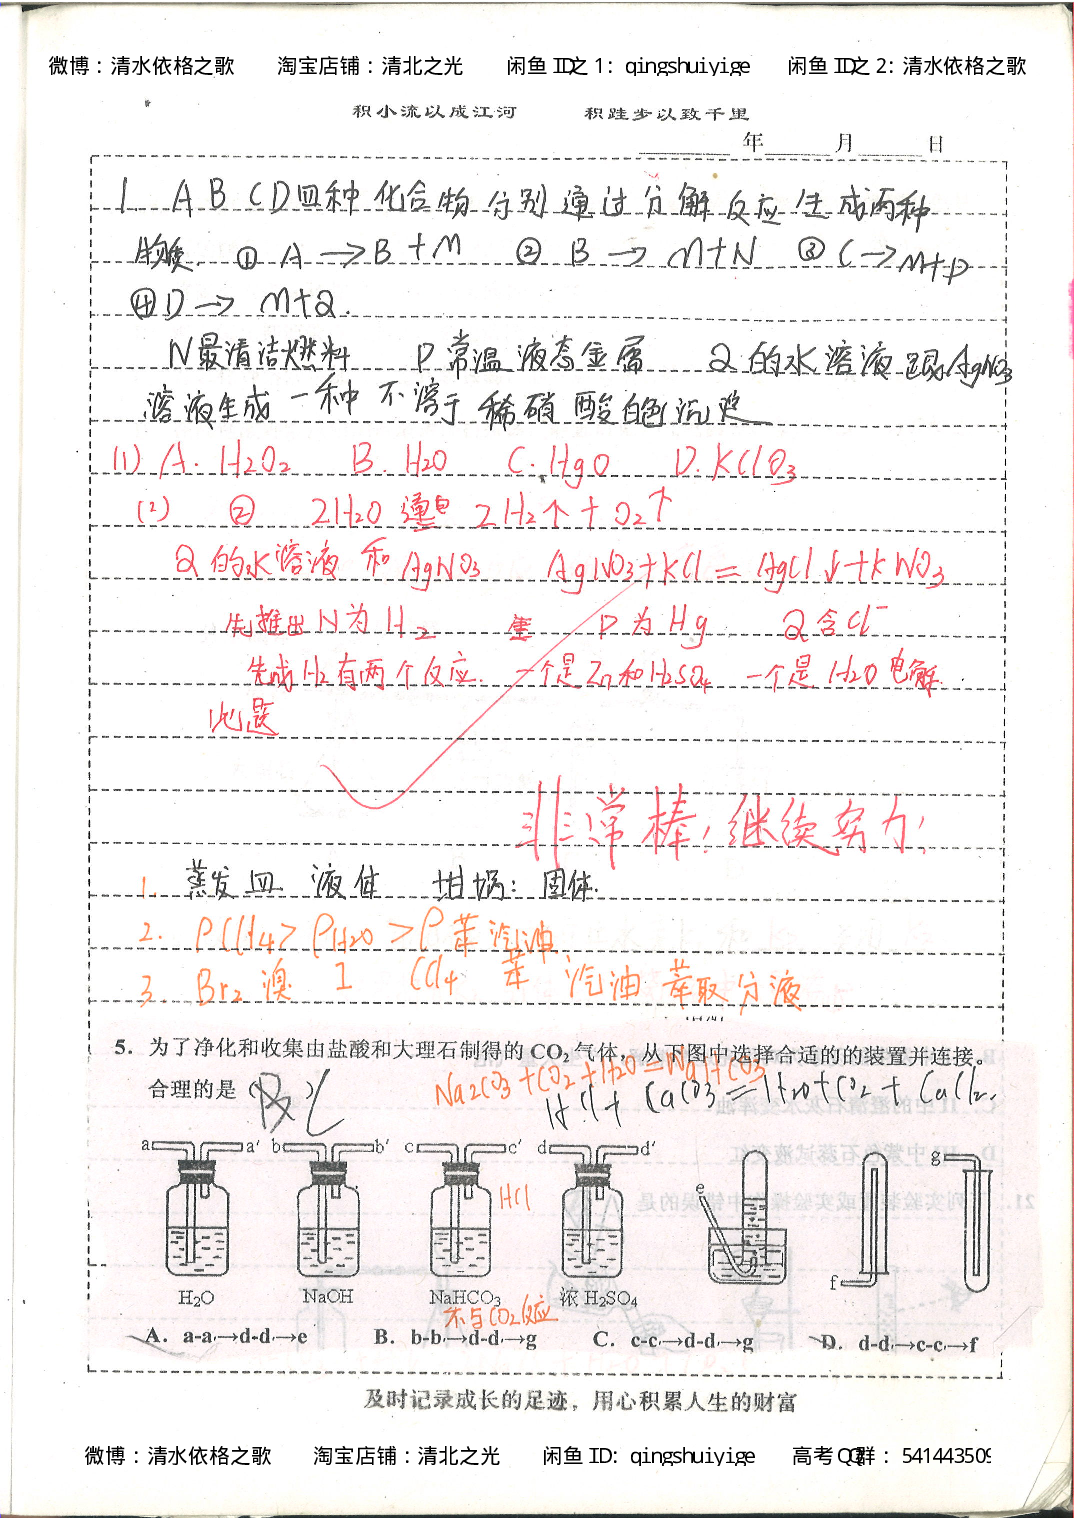 微博：清水依格之歌 淘宝店铺：清北之光 闲鱼ID之1：qingshuiyige 闲鱼ID之2：清水依格之歌
积小流以成江河 积跬步以致千里
年 月 日
1. A B C D四种化合物分别通过分解反应生成两种
物质. ① A → B + M ② B → M+N ③ C → M+P
④ D → M+Q.
N最清洁燃料 P常温液态金属 Q的水溶液跟AgNO3
溶液生成一种不溶于稀硝酸白色沉淀
(1) A. H2O2 B. H2O C. HgO D. KClO3
(2) ② 2H2O 通电 2H2↑ + O2↑
Q的水溶液和AgNO3 AgNO3+KCl = AgCl↓+KNO3
先推出N为H2 P为Hg Q含Cl⁻
生成H2有两个反应. 一个是Zn和H2SO4 一个是H2O电解.
此题
非常棒！继续努力！
1. 蒸发皿 液体 坩埚：固体.
2. ρCCl4 > ρH2O > ρ苯 汽油
3. Br2 溴 I CCl4 苯 汽油 萃取分液
5. 为了净化和收集由盐酸和大理石制得的CO2气体，从下图中选择合适的的装置并连接。
Na2CO3+CO2+H2O=NaHCO3
合理的是（B）C
HCl+ CaCO3=H2O+CO2+ CaCl2.
a a′ b b′ c c′ d d′ e f g
HCl
H2O NaOH NaHCO3 浓H2SO4
不与CO2反应
A. a-a′→d-d′→e B. b-b′→d-d′→g C. c-c′→d-d′→g D. d-d′→c-c′→f
及时记录成长的足迹，用心积累人生的财富
微博：清水依格之歌 淘宝店铺：清北之光 闲鱼ID：qingshuiyige 高考QQ群：541443509